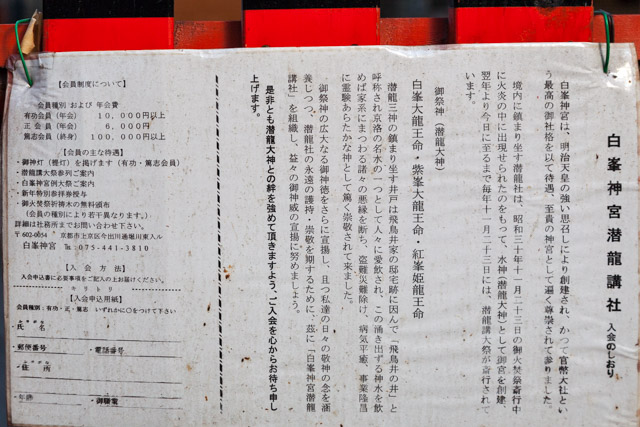 白峯神宮潜龍講社 入会のしおり
白峯神宮は、明治天皇の強い思召しにより創建され、かつて官幣大社とい
う最高の御社格を以て待遇、至貴の神宮として遍く尊崇されて参りました。
境内に鎮まり坐す潜龍社は、昭和三十年十一月二十三日の御火焚祭斎行中
に火炎の中に出現せられたのをもって、水神（潜龍大神）として御宮を創建、
翌年より今日に至るまで毎年十一月二十三日には、潜龍講大祭が斎行されて
います。
御祭神（潜龍大神）
白峯大龍王命・紫峯大龍王命・紅峯姫龍王命
潜龍三神の鎮まり坐す井戸は飛鳥井家の邸宅跡に因んで「飛鳥井の井」と
呼称され京洛の名水の一つとして人々に愛飲され、この涌き出する神水を飲
めば家系にまつわる諸々の悪縁を断ち、盗難災難除け、病気平癒、事業隆昌
に霊験あらたかな神として篤く崇敬されて来ました。
御祭神の広大なる御神徳をさらに宣揚し、且つ私達の日々の敬神の念を涵
養しつつ、潜龍社の永遠の護持・崇敬を期するために、茲に「白峯神宮潜龍
講社」を組織し、益々の御神威の宣揚に努めましょう。
是非とも潜龍大神との絆を強めて頂きますよう、ご入会を心からお待ち申し
上げます。
【会員制度について】
会員種別 および 年会費
有功会員（年会） 10,000円以上
正 会 員（年会） 6,000円
篤志会員（終身） 100,000円以上
【会員の主な待遇】
・御神灯（提灯）を掲げます（有功・篤志会員）
・潜龍講大祭参列ご案内
・白峯神宮例大祭ご案内
・新年特別祈祷参拝授与
・御火焚祭祈祷木の無料頒布
（会員の種別により若干異なります。）
詳細は社務所までお問い合わせ下さい。
〒602-0054 京都市上京区今出川通堀川東入ル
白峯神宮 ℡ 075-441-3810
【入 会 方 法】
入会申込書に必要事項をご記入の上お届けください。
キリトリ
【入会申込用紙】
会員種別：有功・正・篤志 いずれかに○をつけて下さい
・氏 名
・郵便番号 ・電話番号
・住 所
・年齢 ・御職業